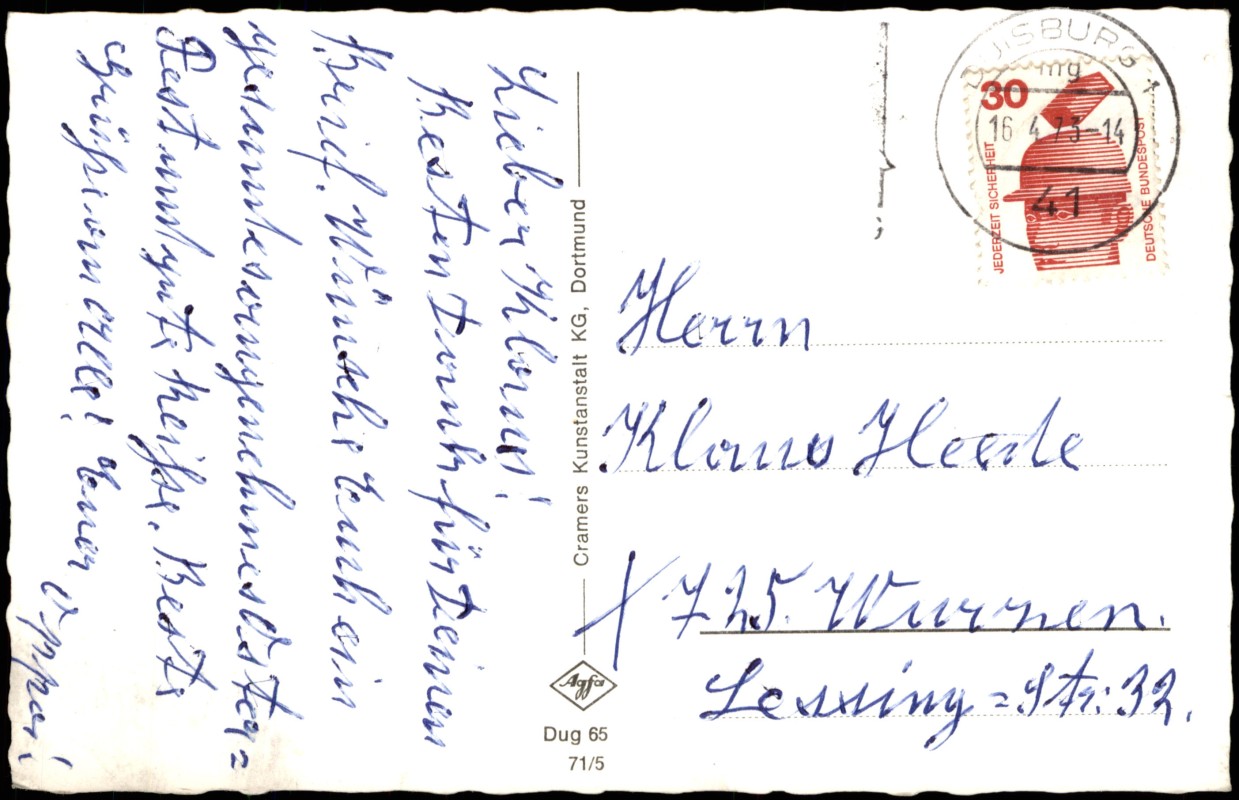 Lieber Klaus!
Besten Dank für Deinen
Brief. Wünsche Euch ein
gesundes angenehmes Oster=
Fest und gute Reise. Beste
Grüße an alle! Euer Oppa!
Cramers Kunstanstalt KG, Dortmund
Agfa
Dug 65
71/5
DUISBURG 1
mg
16.4.73-14
41
30
JEDERZEIT SICHERHEIT
DEUTSCHE BUNDESPOST
Herrn
Klaus Heede
X 725. Wurzen.
Lessing=Str: 32.